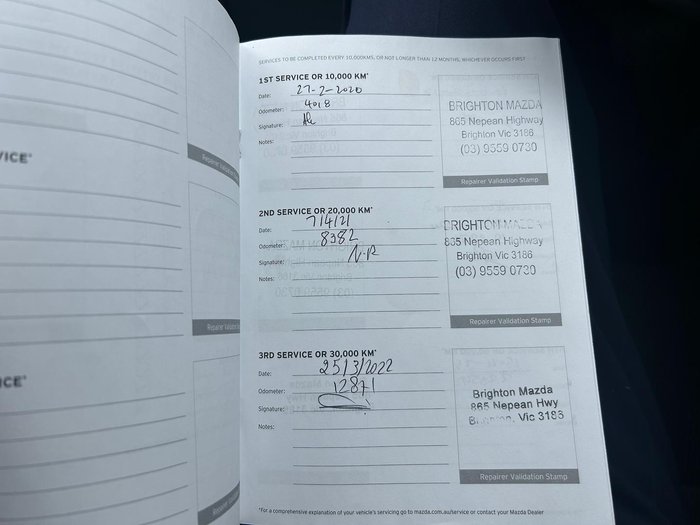 SERVICES TO BE COMPLETED EVERY 10,000KMS, OR NOT LONGER THAN 12 MONTHS, WHICHEVER OCCURS FIRST
1ST SERVICE OR 10,000 KM*
Date: 27-2-2020
Odometer: 4018
Signature:
Notes:
BRIGHTON MAZDA
865 Nepean Highway
Brighton Vic 3186
(03) 9559 0730
Repairer Validation Stamp
2ND SERVICE OR 20,000 KM*
Date: 7/4/21
Odometer: 8382
Signature: N.P
Notes:
BRIGHTON MAZDA
865 Nepean Highway
Brighton Vic 3186
(03) 9559 0730
Repairer Validation Stamp
3RD SERVICE OR 30,000 KM*
Date: 25/3/2022
Odometer: 12871
Signature:
Notes:
Brighton Mazda
865 Nepean Hwy
Vic 3186
Repairer Validation Stamp
*For a comprehensive explanation of your vehicle's servicing go to mazda.com.au/service or contact your Mazda Dealer
VICE*
Repairer Validation
Repairer Validation
ICE*
Repairer